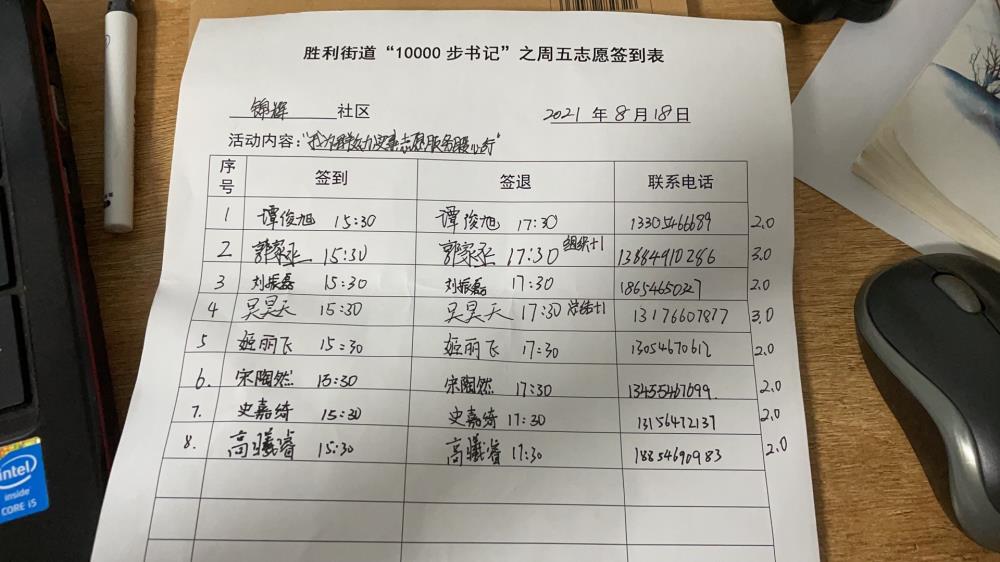 胜利街道“10000步书记”之周五志愿签到表
锦辉 社区 2021 年 8 月 18 日
活动内容：“我为群众办实事志愿服务暖心行”
序号 签到 签退 联系电话
1 谭俊旭 15:30 谭俊旭 17:30 13305466689 2.0
2 郭家丞 15:30 郭家丞 17:30 组织+1 13884910286 3.0
3 刘振磊 15:30 刘振磊 17:30 18654650227 2.0
4 吴昊天 15:30 吴昊天 17:30 总结+1 13176607877 3.0
5 姬丽飞 15:30 姬丽飞 17:30 13054670612 2.0
6. 宋陶然 15:30 宋陶然 17:30 13455467699. 2.0
7. 史嘉绮 15:30 史嘉绮 17:30 13156472137 2.0
8. 高曦睿 15:30 高曦睿 17:30 18854690983 2.0
intel
inside
CORE i5